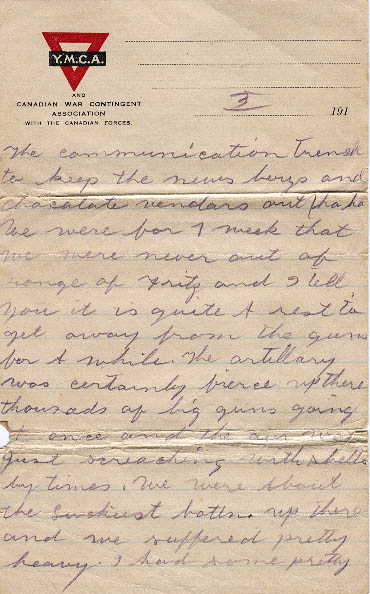 Y.M.C.A.
AND
CANADIAN WAR CONTINGENT
ASSOCIATION
WITH THE CANADIAN FORCES.
3
191
The communication Trench
to keep the news boys and
chocalate vendars out (haha
We were for 1 week that
we were never out of
range of Fritz and I tell
you it is quite A rest to
get away from the guns
for A while. The artillary
was certainly fierce up there
thousads of big guns going
at once and the air was
just screaching with shells
by times. We were about
the luckiest battn. up there
and we suffered pretty
heavy. I had some pretty